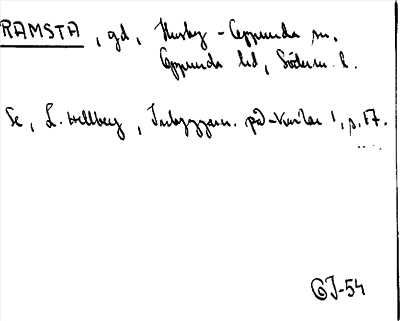 RAMSTA, gd, Husby-Oppunda sn.
Oppunda hd, Söderm. l.
Se, L. Hellberg, Inbyggarn. på -karlar 1, s. 17.
GJ-54